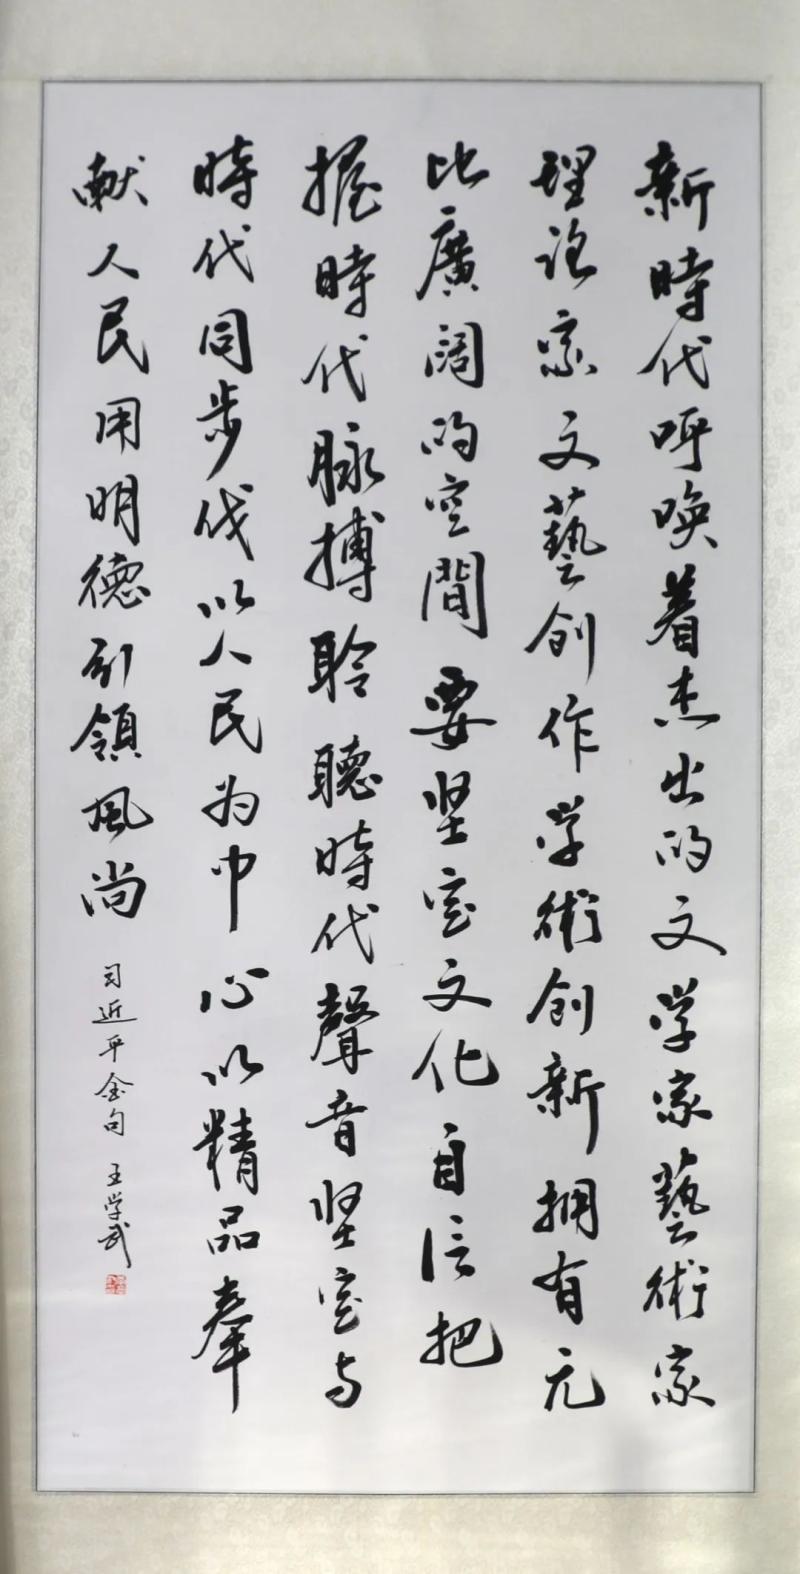 新時代呼唤着杰出的文学家藝術家
理论家文藝创作学術创新拥有无
比廣阔的空間要坚定文化自信把
握時代脉搏聆聽時代聲音坚定与
時代同步伐以人民为中心以精品奉
献人民用明德引領風尚
习近平金句 王学武